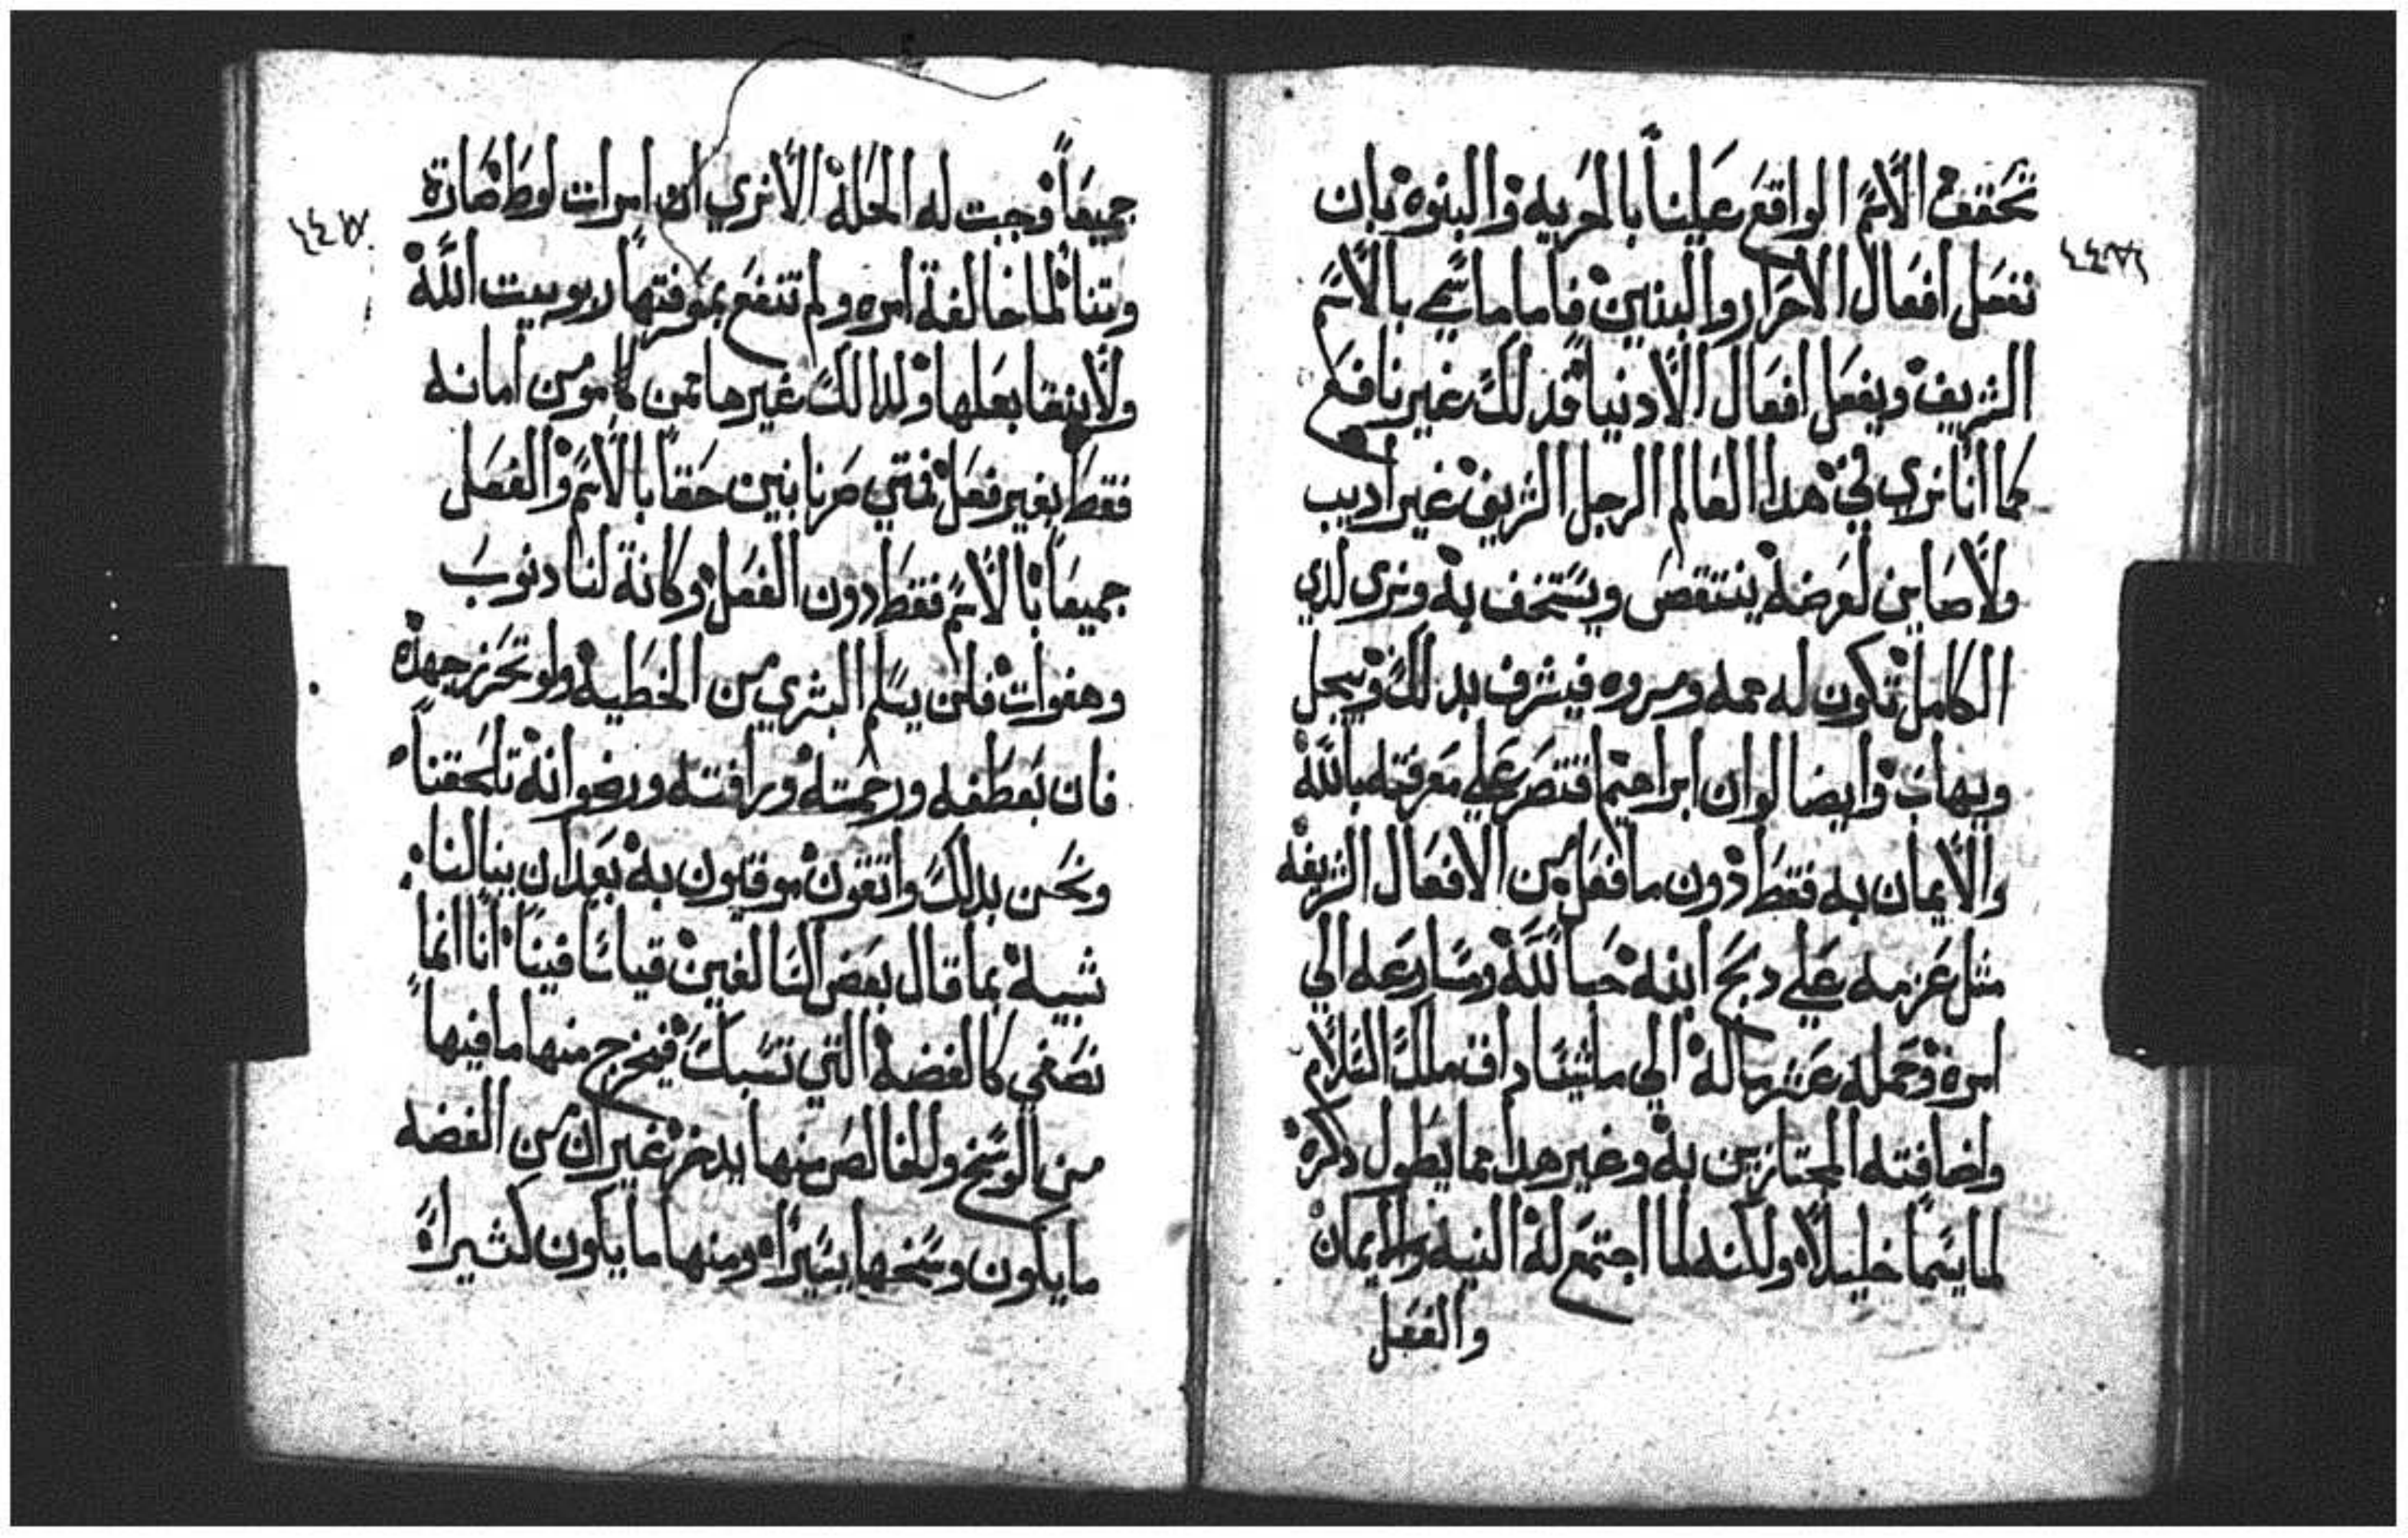 نحقق الاسم الواقع علينا بالحريه والبنوه بان
نفعل افعال الاحرار والبنين فاما ما سمي بالاسم
الشريف ويفعل افعال الادنيا فذلك غير نافع
كما انا نري في هدا العالم الرجل الشريف غير اديب
ولا صاين لعرضه ينتقص ويستخف به ونري لدي
الكامل تكون له همه ومروه فيشرف بدلك ويبجل
ويهاب وايضا لو ان ابراهيم اقتصر علي معرفته بالله
والايمان به فقط دون ما فعل من الافعال الشريفه
مثل عزمه علي دبح ابنه حبا لله ومسارعه الي
امره وحمله عشر ماله الي ملشيساداق ملك السلام
واضافته المجتازين به وغير هدا مما يطول دكره
لما يسما خليلا ولكنه لما اجتمع له النيه والايمان
والفعل
جميعا وجبت له الخله الا نري ان امرات لوط صارة
وتنا لما خالفة امره ولم تنتفع بمعرفتها ربوبيت الله
ولا بنقا بعلها ولدالك غيرها ممن كا مومن امانه
فقط بغير فعل فمتي صرنا بنين حقا بالاسم والفعل
جميعا بالاسم فقط دون الفعل وكانة لنا دنوب
وهفوات فلن يسلم البشري من الخطيه ولو تحرز جهده
فان تعطفه ورحمته ورافته ورضوانه تلحقنا
ونحن بدلك واتقون موقنون به بعد ان ينالنا
شبيه بما قال بعض السالفين قياسا فينا انا انما
نصفي كالفضه التي تسبك فيخرج منها ما فيها
من الوسخ والخالص منها يدخر غير ان من الفضه
ما يكون وسخها يسيرا ومنها ما يكون كثيرا